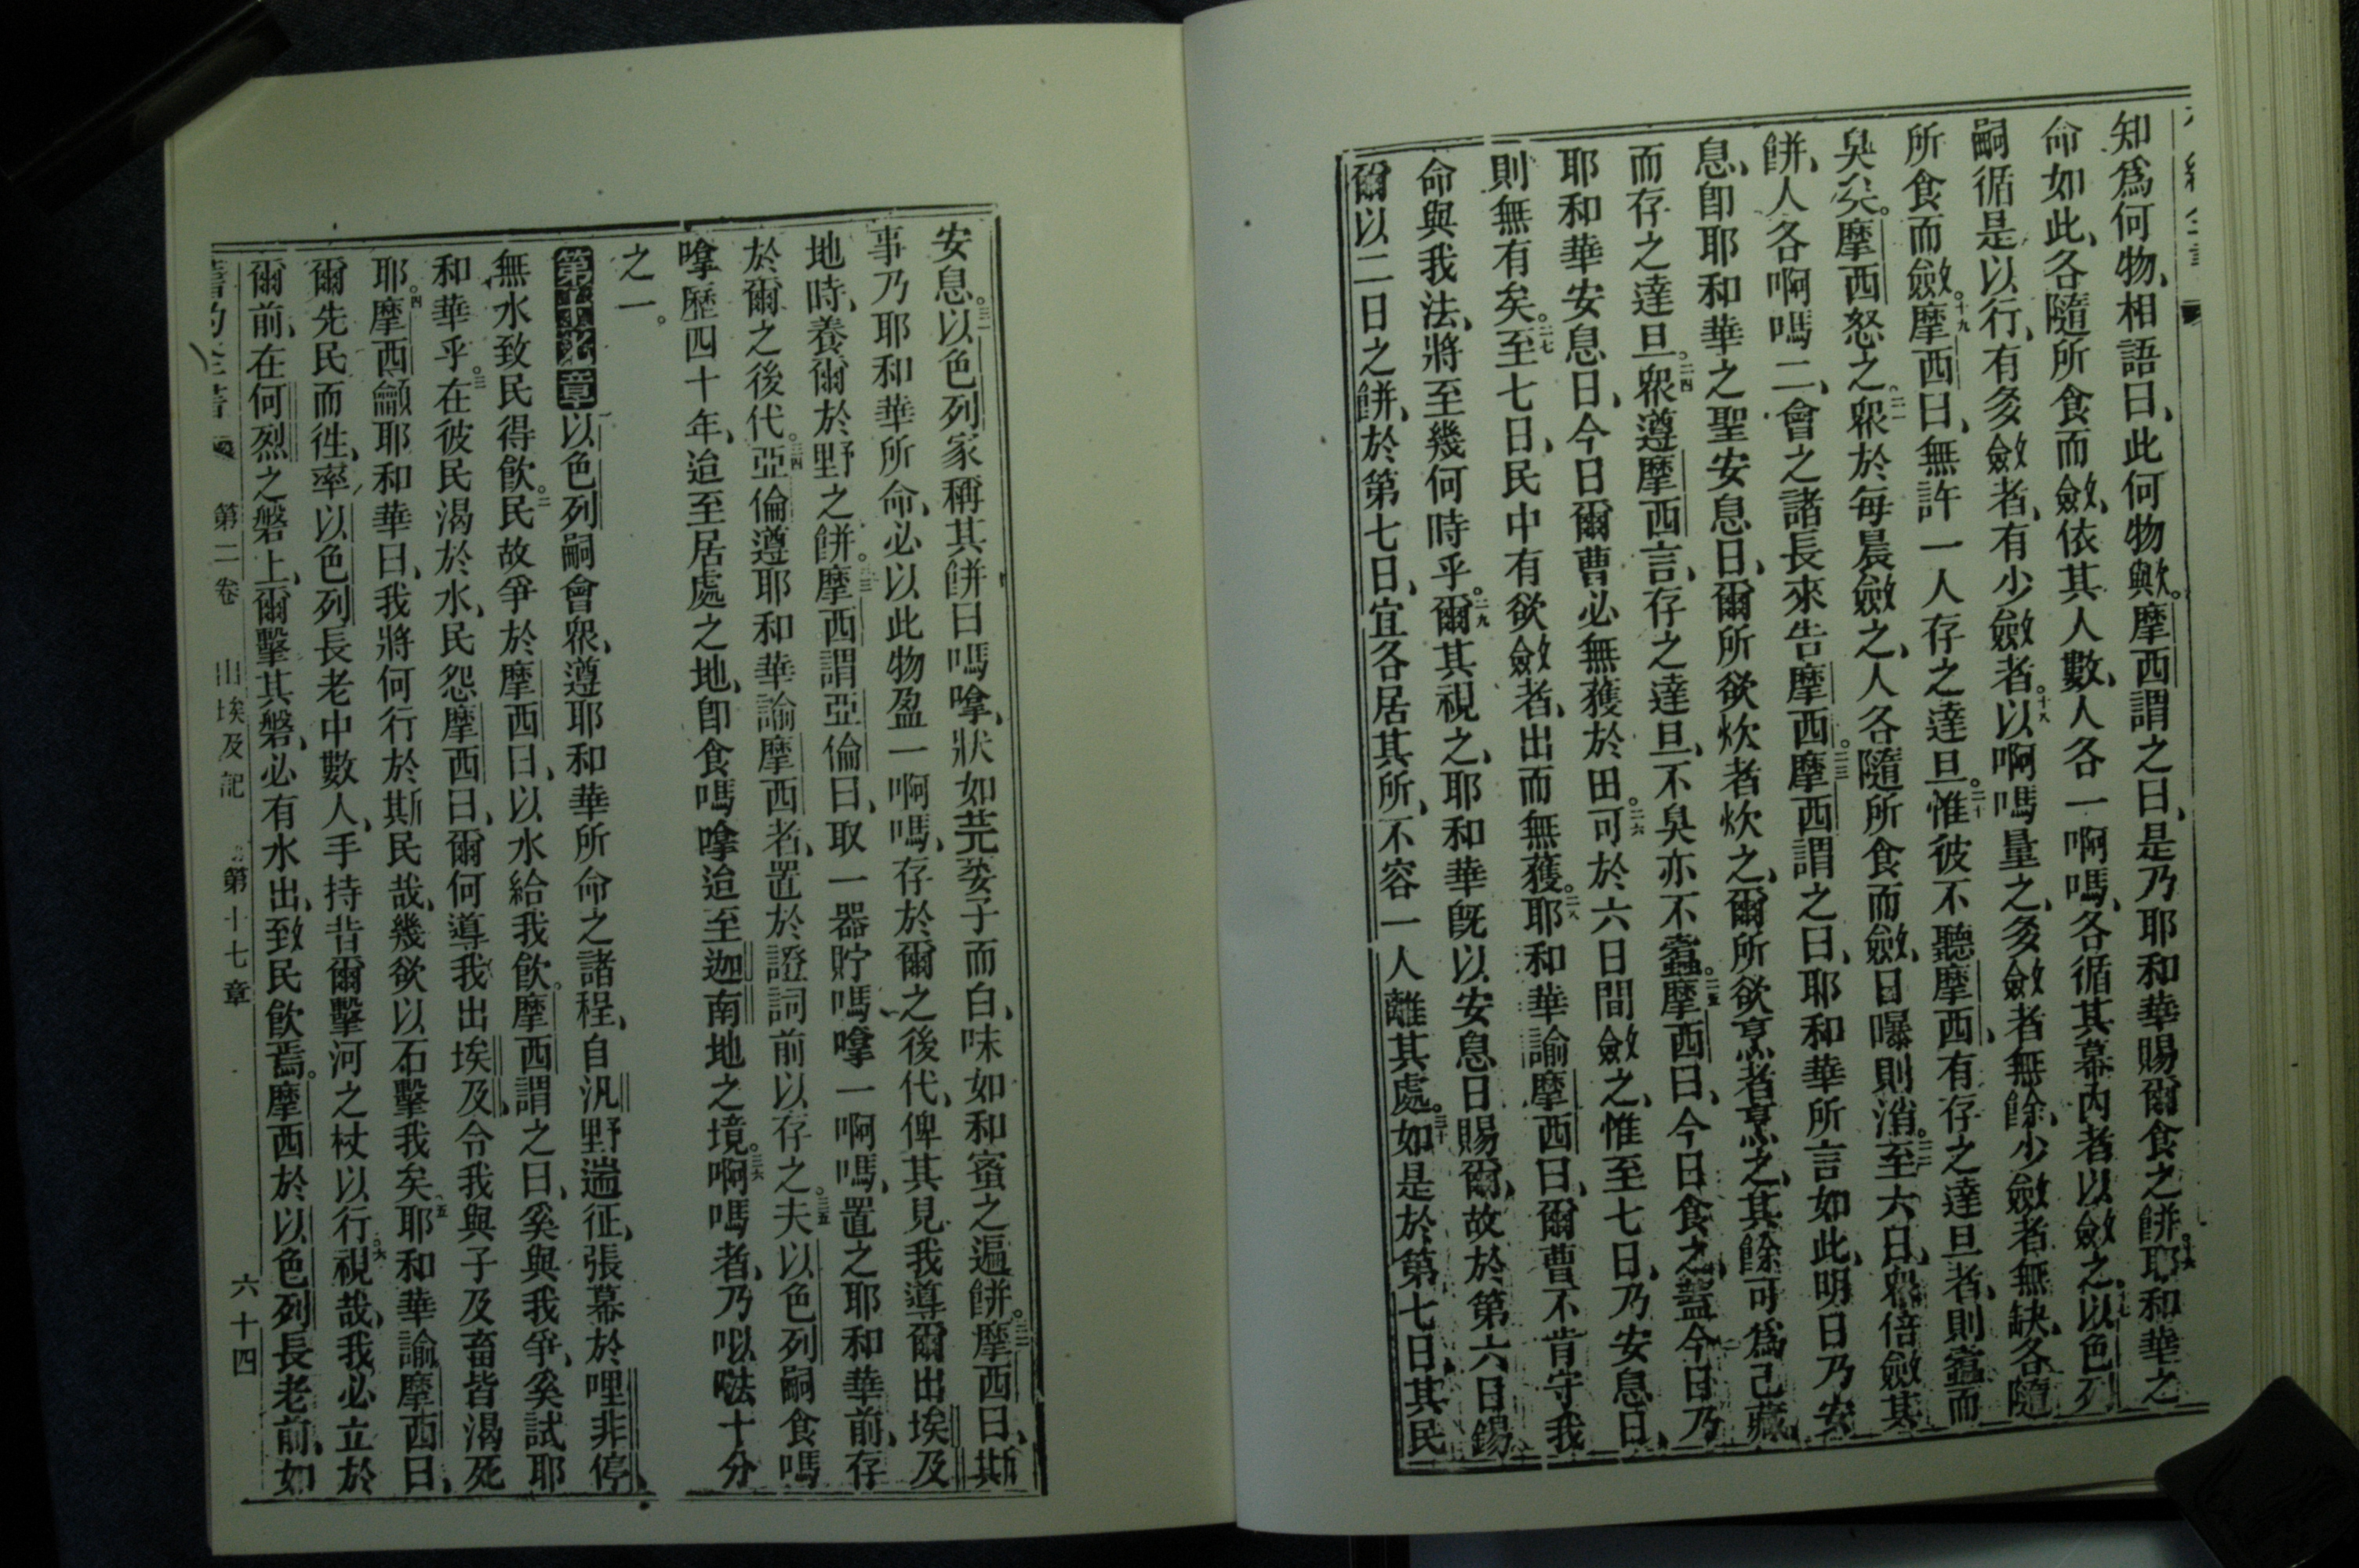 知爲何物、相語曰、此何物歟。摩西謂之曰、是乃耶和華賜爾食之餅。耶和華之
命如此、各隨所食而斂、依其人數、人各一啊嗎、各循其幕內者以斂之、以色列
嗣循是以行、有多斂者、有少斂者。十八以啊嗎量之、多斂者無餘、少斂者無缺、各隨
所食而斂。十九摩西曰、無許一人存之達旦。二十惟彼不聽摩西、有存之達旦者、則蠹而
臭矣。摩西怒之。二一眾於每晨斂之、人各隨所食而斂、日曝則消。二二至六日、眾倍斂其
餅、人各啊嗎二、會之諸長來告摩西。二三摩西謂之曰、耶和華所言如此、明日乃安
息、即耶和華之聖安息日、爾所欲炊者炊之、爾所欲烹者烹之、其餘可爲己藏、
而存之達旦。二四眾遵摩西言、存之達旦、不臭亦不蠹。二五摩西曰、今日食之、蓋今日乃
耶和華安息日、今日爾曹必無獲於田。二六可於六日間斂之、惟至七日、乃安息日、
則無有矣。二七至七日、民中有欲斂者、出而無獲。二八耶和華諭摩西曰、爾曹不肯守我
命與我法、將至幾何時乎。二九爾其視之、耶和華旣以安息日賜爾、故於第六日錫
爾以二日之餅、於第七日、宜各居其所、不容一人離其處。三十如是於第七日、其民
安息。三一以色列家稱其餅曰嗎嗱、狀如芫荽子而白、味如和蜜之薄餅。三二摩西曰、斯
事乃耶和華所命、必以此物盈一啊嗎、存於爾之後代、俾其見我導爾出埃及
地時、養爾於野之餅。三三摩西謂亞倫曰、取一器貯嗎嗱一啊嗎、置之耶和華前、存
於爾之後代。三四亞倫遵耶和華諭摩西者、置於證詞前以存之。三五夫以色列嗣食嗎
嗱歷四十年、迨至居處之地、即食嗎嗱迨至迦南地之境。三六啊嗎者、乃㕥㗶十分
之一。
第十七章 以色列嗣會眾、遵耶和華所命之諸程、自汛野遄征、張幕於哩非停、
無水致民得飲。二民故爭於摩西曰、以水給我飲。摩西謂之曰、奚與我爭、奚試耶
和華乎。三在彼民渴於水、民怨摩西曰、爾何導我出埃及、令我與子及畜皆渴死
耶。四摩西籲耶和華曰、我將何行於斯民哉、幾欲以石擊我矣。五耶和華諭摩西曰、
爾先民而徃、率以色列長老中數人、手持昔爾擊河之杖以行。六視哉、我必立於
爾前、在何烈之磐上、爾擊其磐、必有水出、致民飲焉。摩西於以色列長老前、如
舊約全書 第二卷 出埃及記 第十七章 六十四